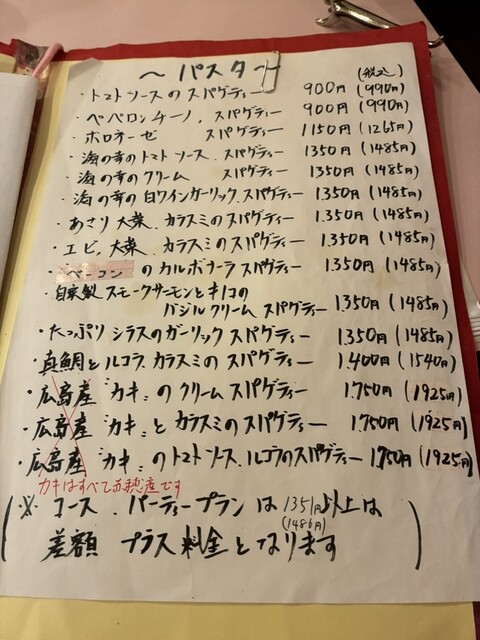 〜パスタ〜
(税込)
・トマトソースのスパゲティー 900円(990円)
・ペペロンチーノ、スパゲティー 900円(990円)
・ボロネーゼ スパゲティー 1150円(1265円)
・海の幸のトマトソース、スパゲティー 1350円(1485円)
・海の幸のクリーム スパゲティー 1350円(1485円)
・海の幸の白ワインガーリック、スパゲティー 1.350円(1485円)
・あさり、大葉、カラスミのスパゲティー 1.350円(1485円)
・エビ、大葉、カラスミのスパゲティー 1.350円(1485円)
・ベーコンのカルボナーラスパゲティー 1.350円(1485円)
・自家製スモークサーモンとキノコの
バジルクリームスパゲティー 1.350円(1485円)
・たっぷりシラスのガーリックスパゲティー 1.350円(1485円)
・真鯛とルコラ、カラスミのスパゲティー 1.400円(1540円)
・広島産"カキ"のクリームスパゲティー 1.750円(1925円)
・広島産"カキ"とカラスミのスパゲティー 1.750円(1925円)
・広島産"カキ"のトマトソース、ルコラのスパゲティー 1.750円(1925円)
カキはすべて赤穂産です
(※コース、パーティープランは1351円以上は
(1486円)
差額プラス料金となります)